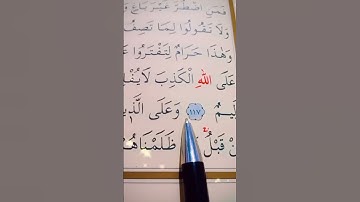 فَمَنِ اضْطُرَّ غَيْرَ بَاغٍ وَ
وَلَا تَقُولُوا لِمَا تَصِفُ
وَهٰذَا حَرَامٌ لِتَفْتَرُوا عَ
عَلَى اللّٰهِ الْكَذِبَ لَا يُفْ
لِيمٌ ﴿١١٧﴾ وَعَلَى الَّذ۪ي
نْ قَبْلُ ظَلَمْنَاهُ